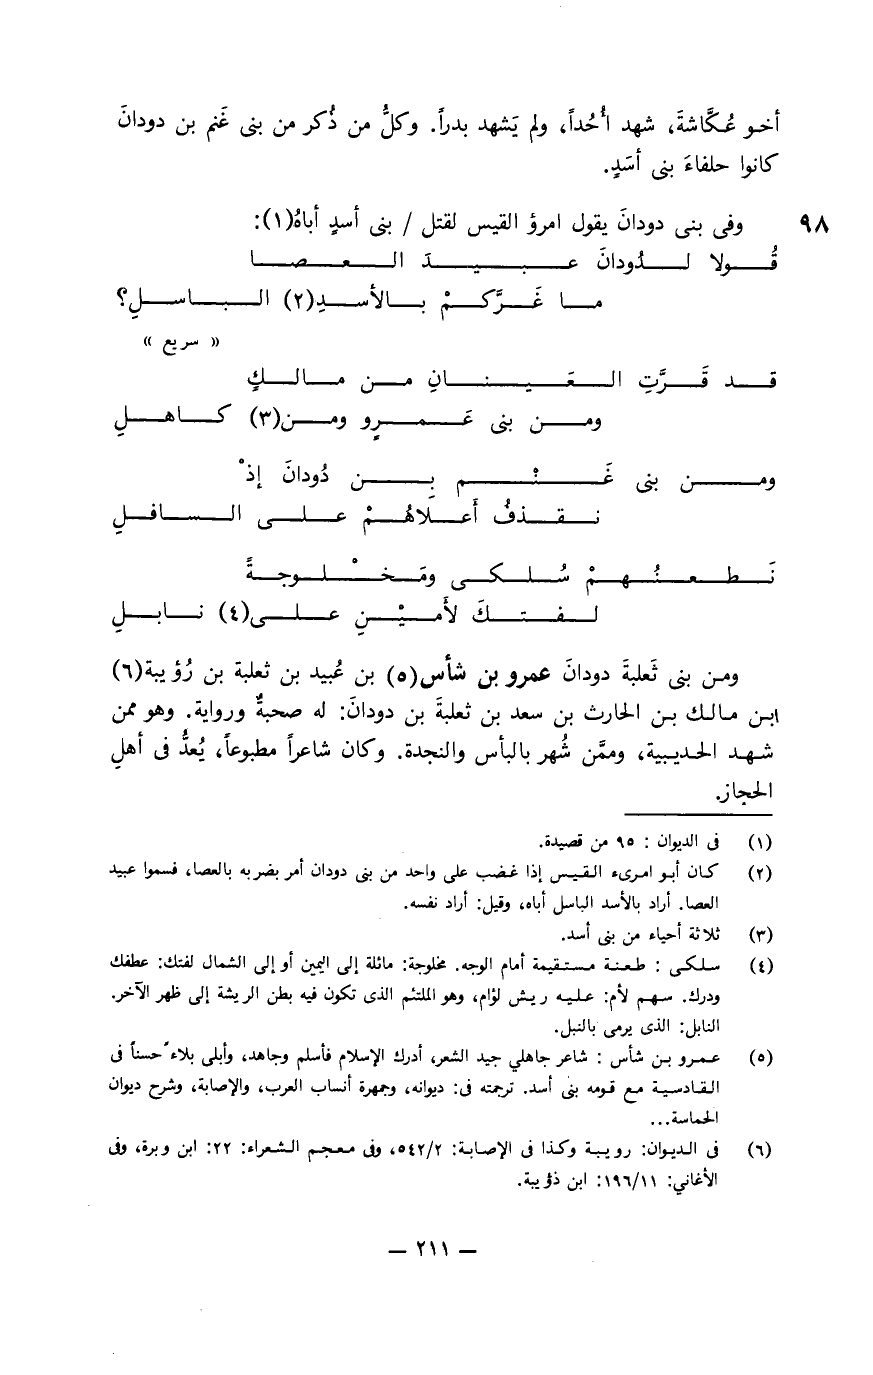 أخو عُكَّاشةَ، شهد أُحُداً، ولم يَشهد بدراً. وكلُّ من ذُكر من بنى غَنم بن دودانَ
كانوا حلفاءَ بنى أسَدٍ.
٩٨ وفى بنى دودانَ يقول امرؤ القيس لقتل / بنى أسدٍ أباهُ(١):
قُولا لدُودانَ عبيدَ العصا
ما غَرَّكمْ بالأسدِ(٢) الباسلِ؟
« سريع »
قد قَرَّتِ العَينانِ من مالكٍ
ومن بنى عَمرٍو ومن(٣) كاهلِ
ومن بنى غَنْم بِن دُودانَ إذْ
نقذفُ أعلَاهُمْ على السافلِ
نَطعنُهمْ سُلكى ومَخْلوجةً
لفتكَ لأَميْنِ على(٤) نابلِ
ومن بنى ثَعلبةَ دودانَ عمرو بن شأس(٥) بن عُبيد بن ثعلبة بن رُؤيبة(٦)
ابن مالك بن الحارث بن سعد بن ثعلبةَ بن دودانَ: له صحبةٌ ورواية. وهو ممن
شهد الحديبية، وممَّن شُهر بالبأس والنجدة. وكان شاعراً مطبوعاً، يُعدُّ فى أهلِ
الحجاز.
(١) فى الديوان : ٩٥ من قصيدة.
(٢) كان أبو امرىء القيس إذا غضب على واحد من بنى دودان أمر بضربه بالعصا، فسموا عبيد
العصا. أراد بالأسد الباسل أباه، وقيل: أراد نفسه.
(٣) ثلاثة أحياء من بنى أسد.
(٤) سلكى : طعنة مستقيمة أمام الوجه. مخلوجة: مائلة إلى اليمين أو إلى الشمال لفتك: عطفك
ودرك. سهم لأم: عليه ريش لؤام، وهو الملتئم الذى تكون فيه بطن الريشة إلى ظهر الآخر.
النابل: الذى يرمى بالنبل.
(٥) عمرو بن شأس : شاعر جاهلي جيد الشعر، أدرك الإسلام فأسلم وجاهد، وأبلى بلاءً حسناً فى
القادسية مع قومه بنى أسد. ترجمته فى: ديوانه، وجمهرة أنساب العرب، والإصابة، وشرح ديوان
الحماسة...
(٦) فى الديوان: رويبة وكذا فى الإصابة: ٥٤٢/٢، وفى معجم الشعراء: ٢٢: ابن وبرة، وفى
الأغاني: ١٩٦/١١: ابن ذؤيبة.
— ٢١١ —